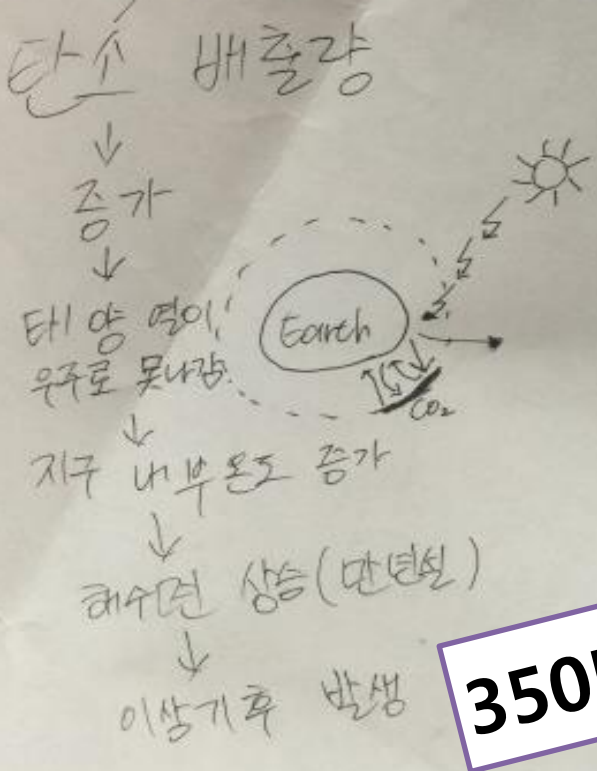 탄소 배출량
증가
태양 열이
우주로 못나감
Earth
CO₂
지구 내부온도 증가
해수면 상승(만년설)
이상기후 발생
350